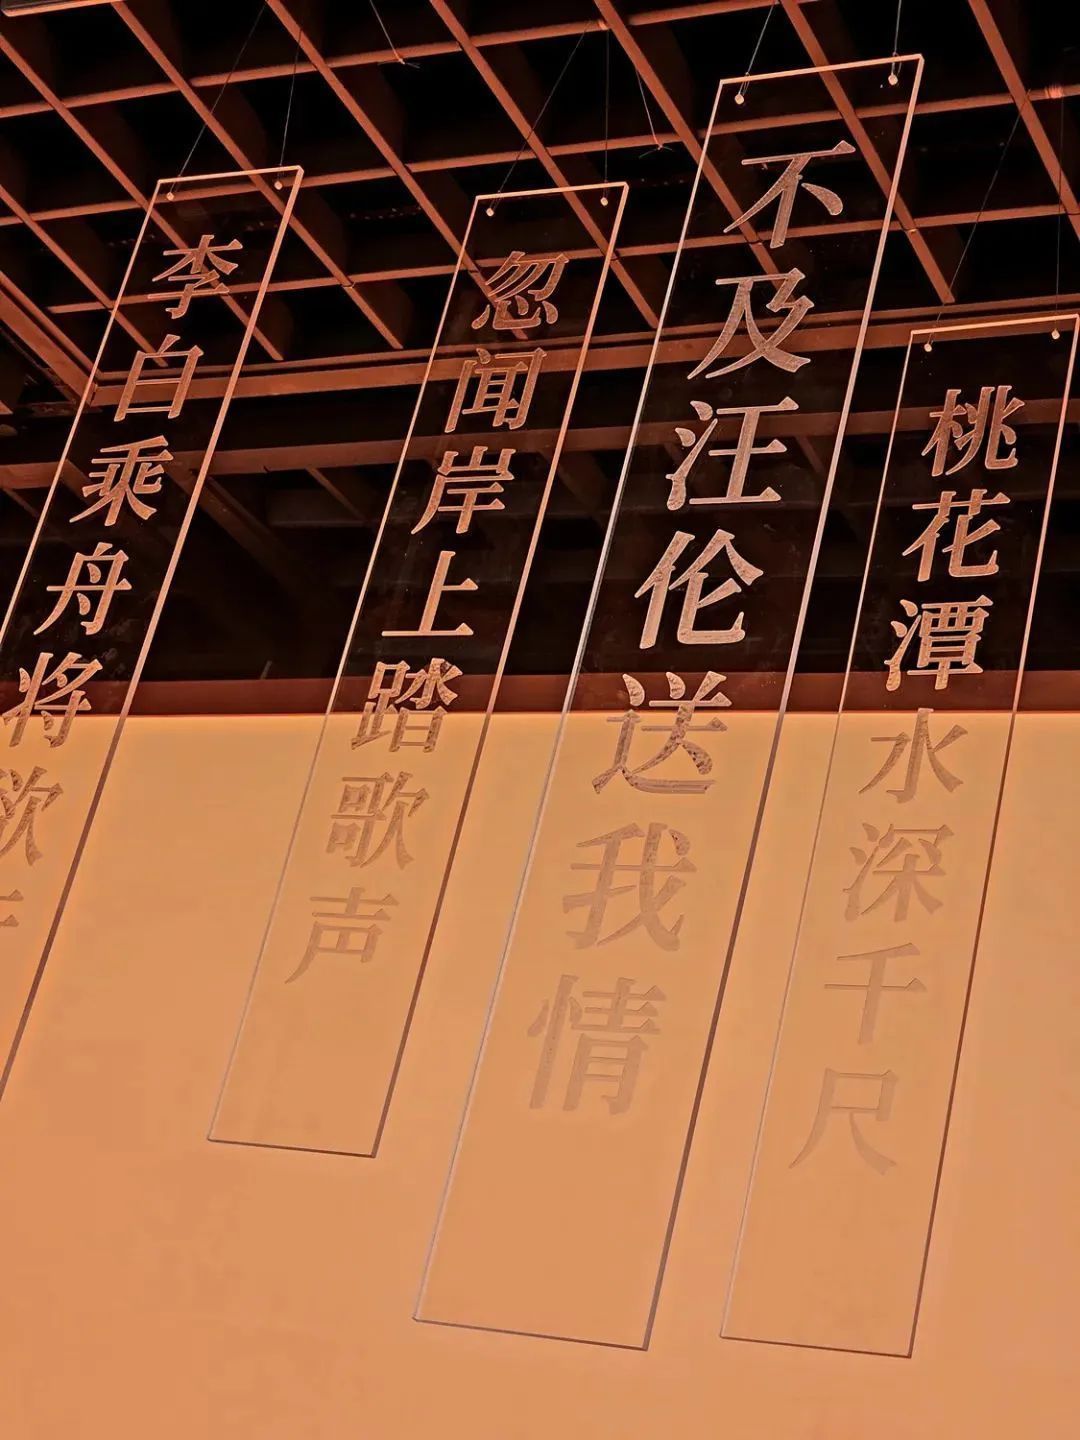 李白乘舟将欲
忽闻岸上踏歌声
不及汪伦送我情
桃花潭水深千尺